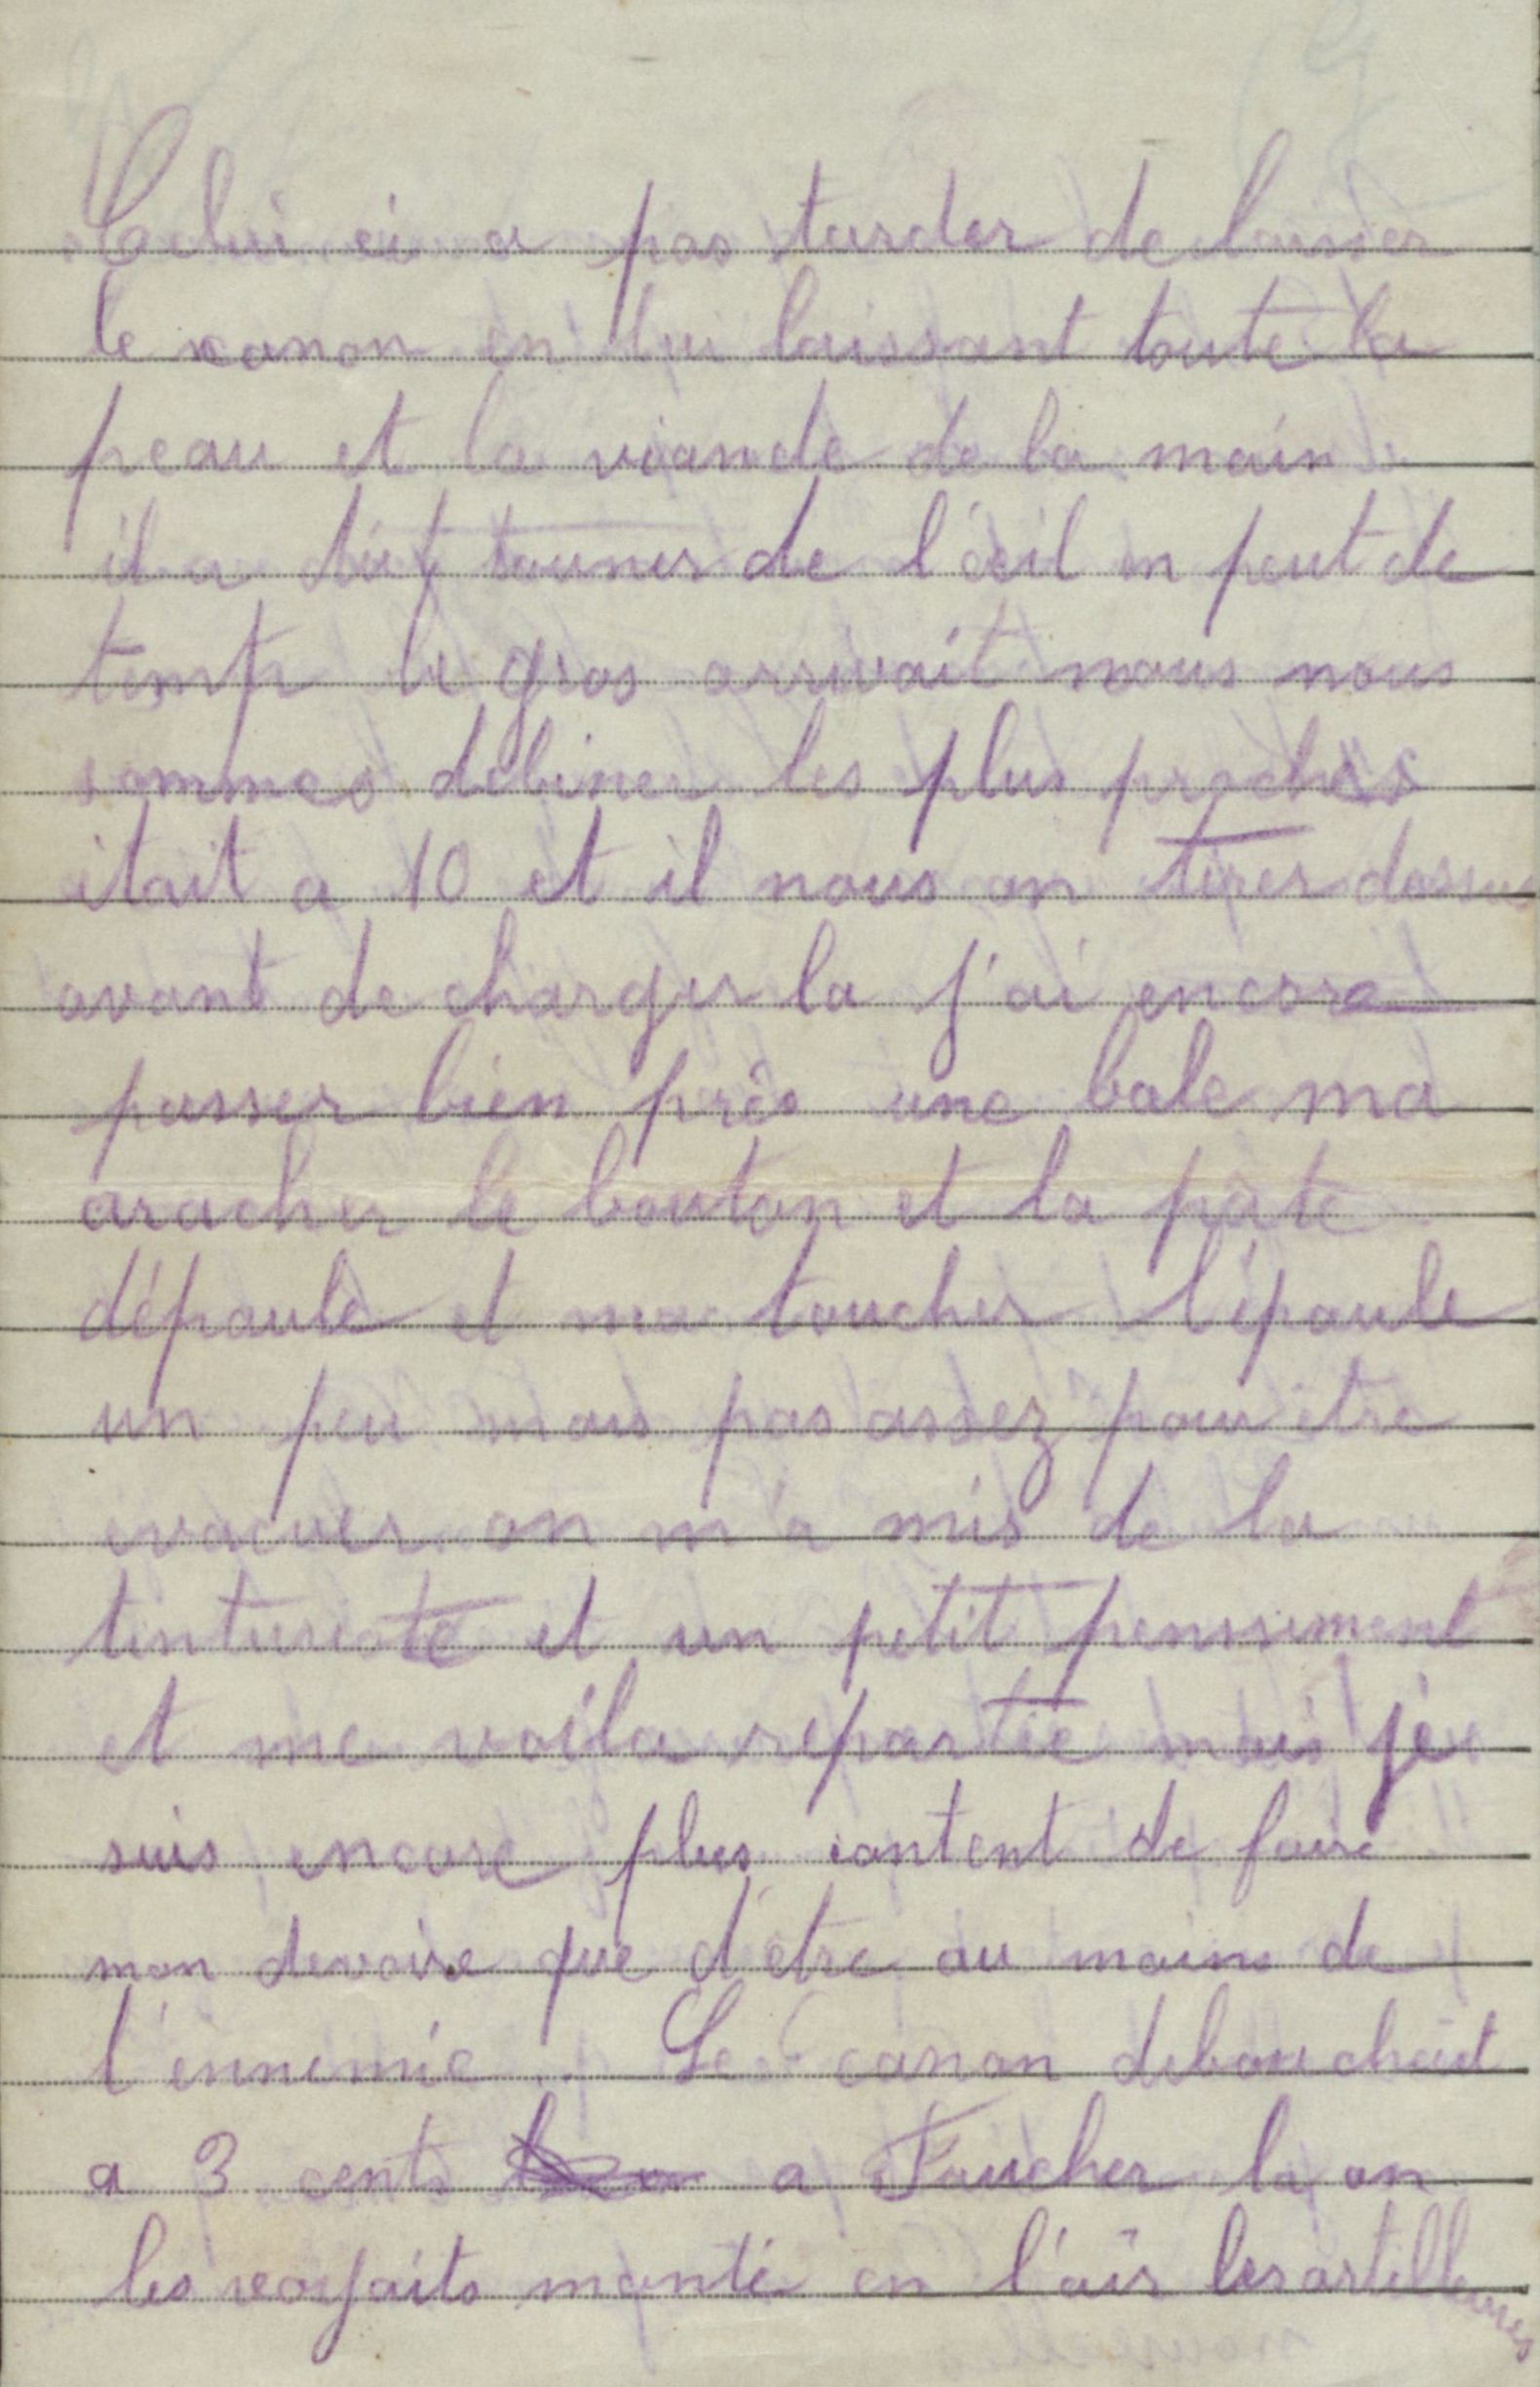 Celui ci a pas tarder de laisser
le canon en lui laissant toute la
peau et la viande de la main
il a dut tourner de l'oeil en peut de
temp le gros arrivait nous nous
sommes débiner les plus proches
était a 10 et il nous on tirer dessus
avant de charger la j'ai encore
passer bien près une bale ma
aracher le bouton et la pate
dépaule et ma toucher l'épaule
un peu mais pas assez pour etre
évacuer on m'a mis de la
et un petit pensement
et me voila repartie mais je
suis encore plus content de faire
mon devoire que d'etre au mains de
l'ennemie. Le canon debouchait
a 3 cents a Faucher la on
les voyaits monté en l'air les artilleures